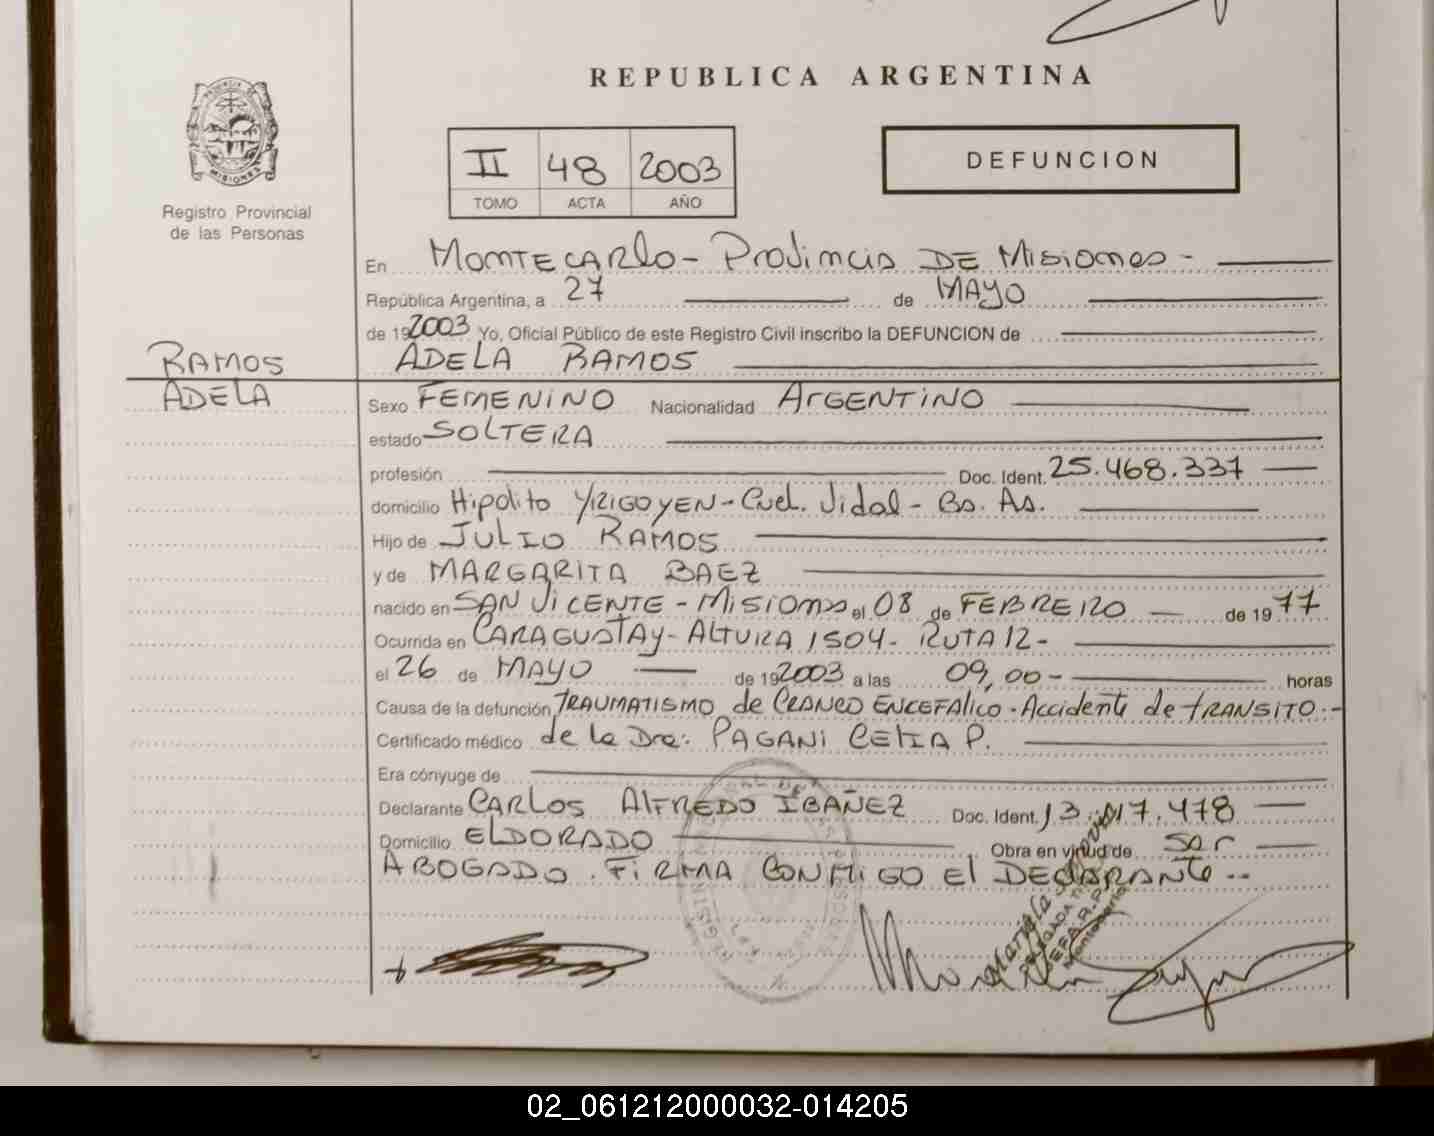 REPUBLICA ARGENTINA
PROVINCIA DE
MISIONES
Registro Provincial
de las Personas
II 48 2003
TOMO ACTA AÑO
DEFUNCION
En MONTECARlo - Provincia DE Misiones -
República Argentina, a 27 de MAYO
de 192003 Yo, Oficial Público de este Registro Civil inscribo la DEFUNCION de
RAMOS ADELA RAMOS
ADELA
Sexo FEMENINO Nacionalidad ARGENTINO
estado SOLTERA
profesión Doc. Ident. 25.468.337
domicilio Hipolito YRIGOYEN - Cnel. Vidal - Bs. As.
Hijo de JULIO RAMOS
y de MARGARITA BAEZ
nacido en SAN VICENTE - Misiones el 08 de FEBRERO de 19 77
Ocurrida en CARAGUATAY - ALTURA 1504 - RUTA 12 -
el 26 de MAYO de 192003 a las 09,00 - horas
Causa de la defunción TRAUMATISMO de CRANEO ENCEFALICO - Accidente de TRANSITO.-
Certificado médico de la Dra: PAGANI CELIA P.
Era cónyuge de
Declarante CARLOS ALFREDO IBAÑEZ Doc. Ident. 13.117.478
Domicilio ELDORADO Obra en virtud de ser
ABOGADO. FIRMA CONMIGO El DEClARANTe --
02_061212000032-014205